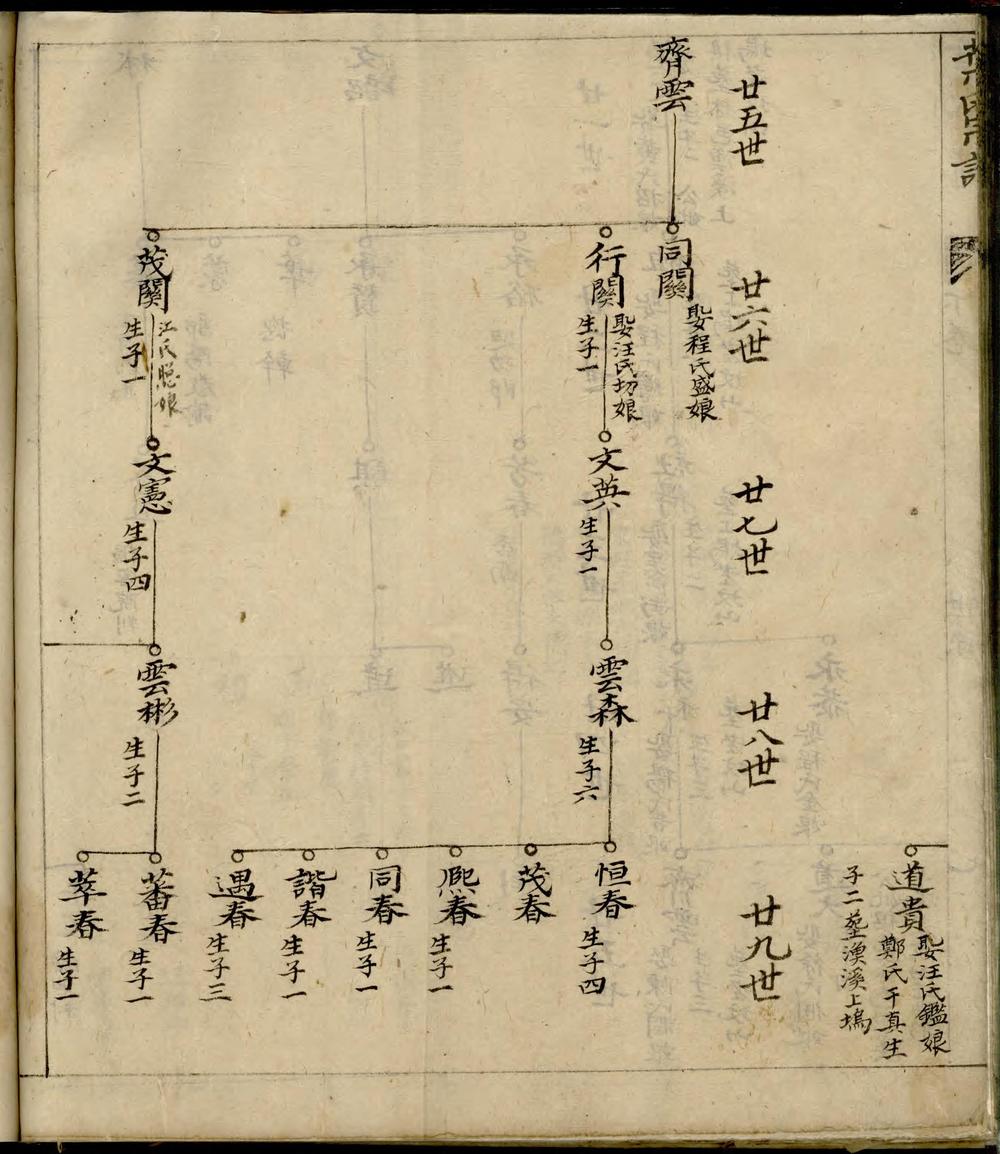 道貴
娶汪氏鑑娘
鄭氏千真生
子二塟漁溪上塢
廿五世
廿六世
廿七世
廿八世
廿九世
齊雲
同關
娶程氏盛娘
行關
娶汪氏切娘
生子一
文英
生子一
雲森
生子六
恒春
生子四
茂春
熈春
生子一
同春
生子一
諧春
生子一
遇春
生子三
茂關
江氏聰娘
生子一
文憲
生子四
雲彬
生子二
蕃春
生子一
萃春
生子一